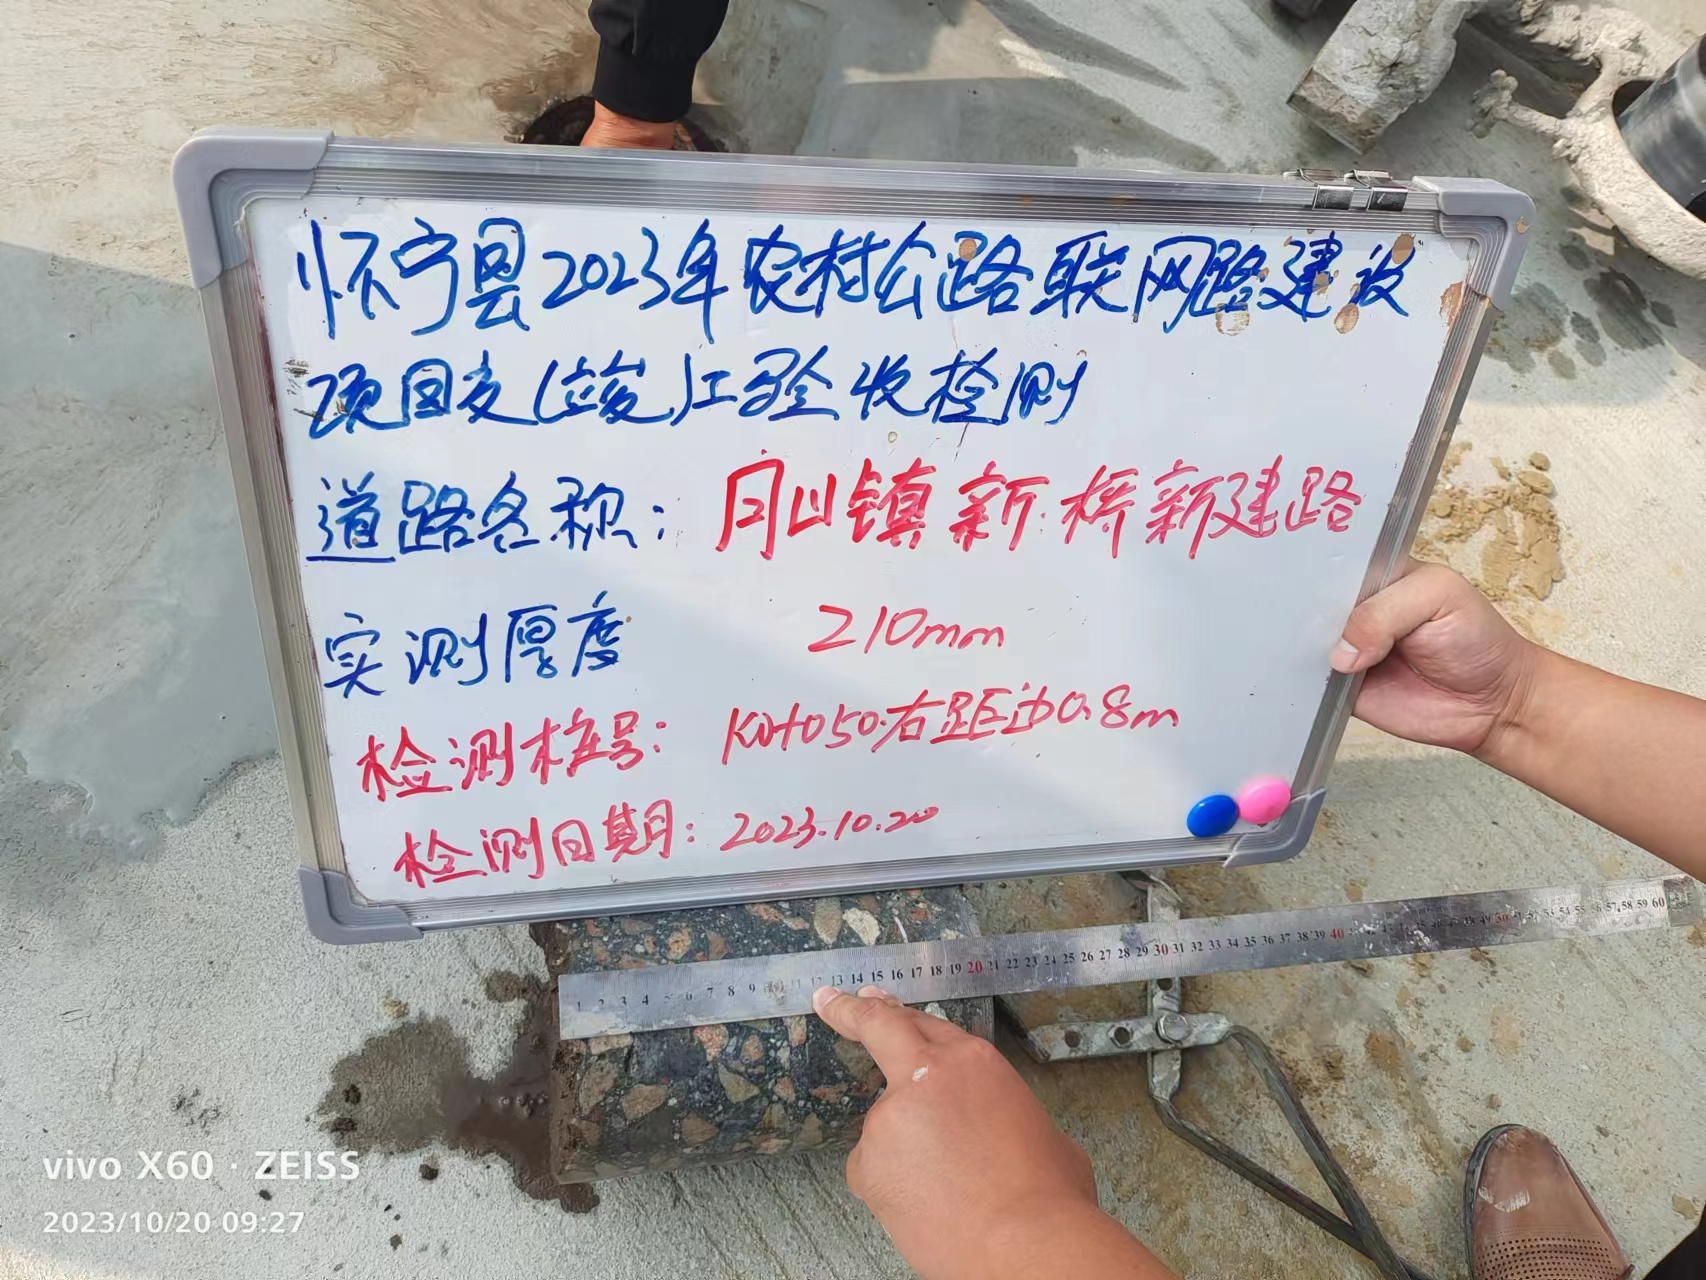 怀宁县2023年农村公路联网路建设
项目交(竣)工验收检测
道路名称：月山镇新桥新建路
实测厚度 210mm
检测桩号：K0+050右距边0.8m
检测日期：2023.10.20
1 2 3 4 5 6 7 8 9 10 11 12 13 14 15 16 17 18 19 20 21 22 23 24 25 26 27 28 29 30 31 32 33 34 35 36 37 38 39 40 48 49 50 51 52 53 54 55 56 57 58 59 60
vivo X60 · ZEISS
2023/10/20 09:27